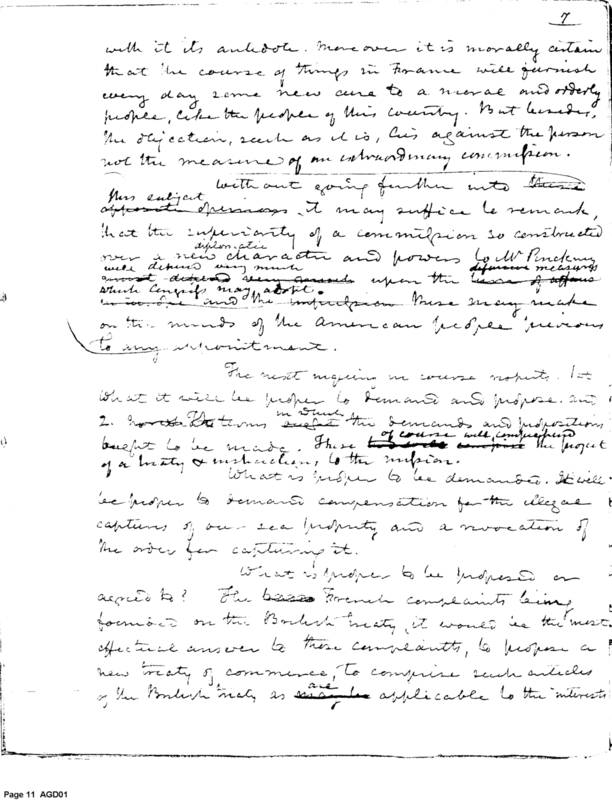 7
with it its antidote. Moreover it is morally certain
that the course of things in France will furnish
every day some new cure to a moral and orderly
people, like the people of this country. But besides,
the objection, such as it is, lies against the person
not the measure of an extraordinary commission.
Without going further into these
this subject
opposite opinions, it may suffice to remark,
that the superiority of a commission so constructed
diplomatic
over a new character and powers to Mr Pinckney
will depend very much defensive measures
must depend very much upon the state of affairs
which Congress may adopt.
and the impression these may make
on the minds of the American people previous
to any appointment.
The next inquiry in course respects. 1st
What it will be proper to demand and propose. and
in which
2. The terms the demands and propositions
of course will comprehend
ought to be made. These the project
of a treaty & instructions to the mission.
What is proper to be demanded. It will
be proper to demand compensation for the illegal
captures of our sea property and a revocation of
the order for capturing it.
What is proper to be proposed or
agreed to? The French complaints being
founded on the British treaty, it would be the most
effectual answer to those complaints, to propose a
new treaty of commerce, to comprise such articles
are
of the British treaty as may be applicable to the interests
Page 11 AGD01